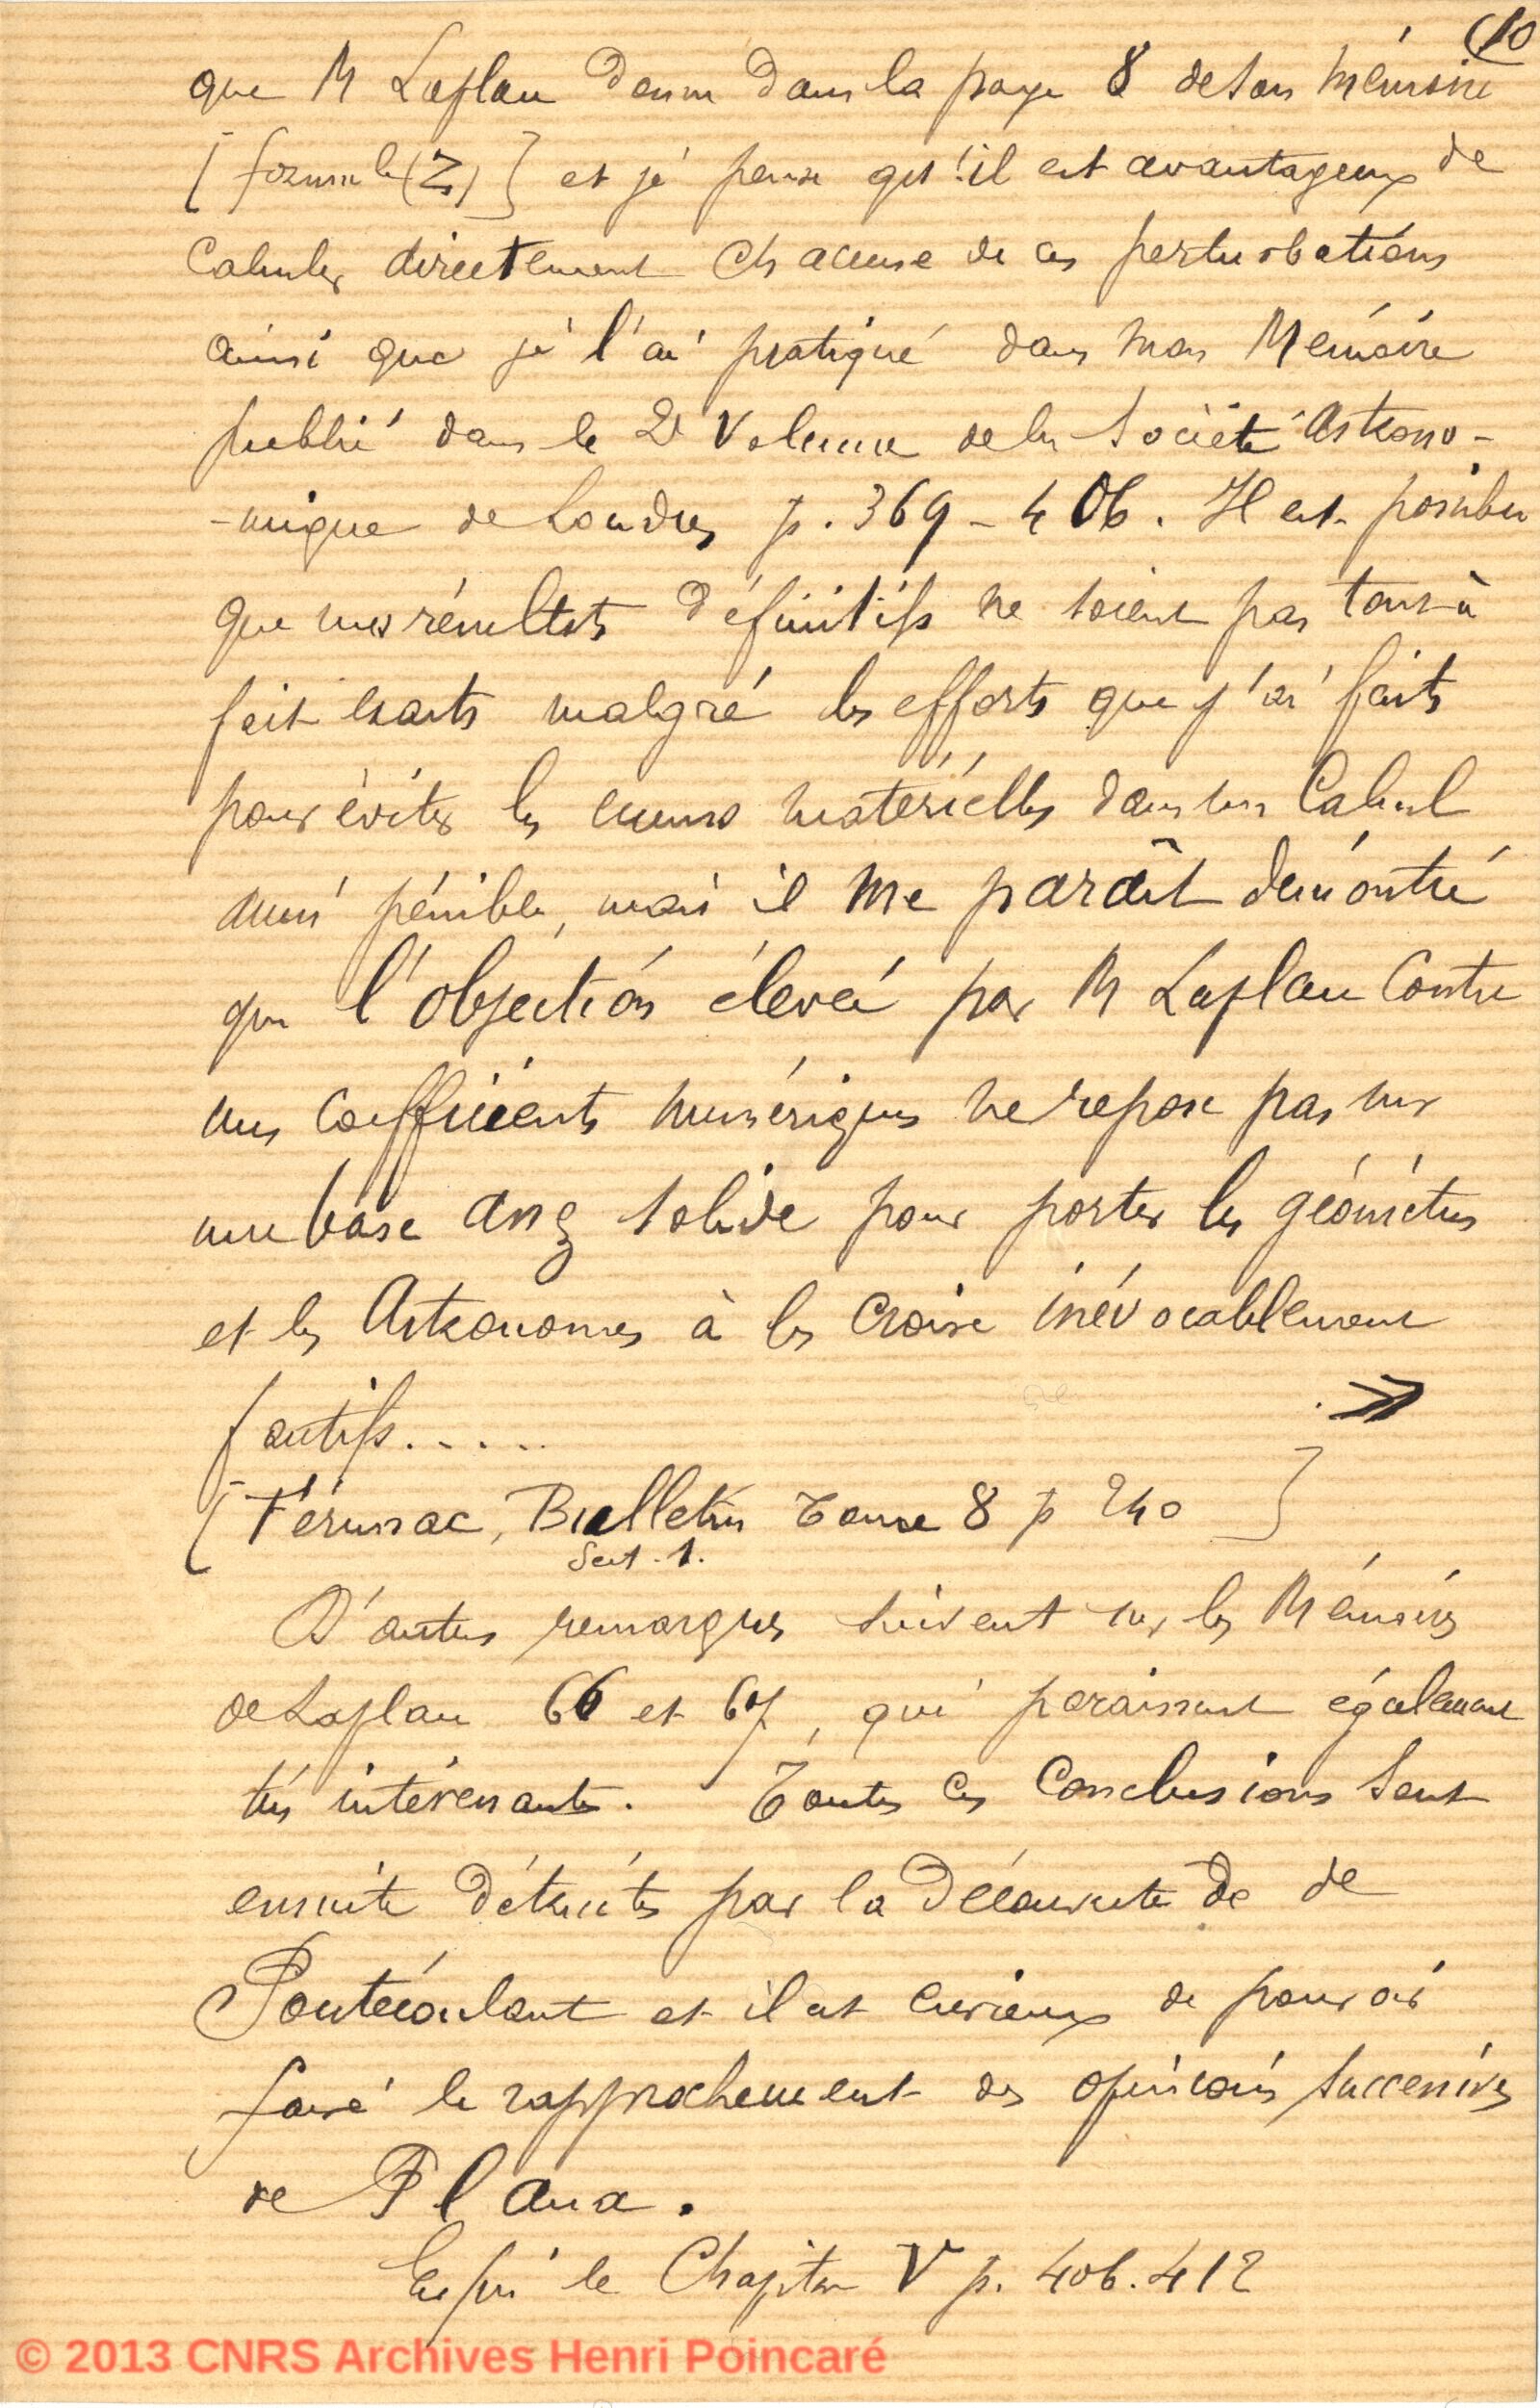 (10
que M Laplace donne dans la page 8 de son mémoire
[formule (Z)] et je pense qu'il est avantageux de
Calculer directement Chacune de ces perturbations
ainsi que je l'ai pratiqué dans mon Mémoire
publié dans le 2d Volume de la Société Astrono-
-mique de Londres p. 369-406. Il est possible
que mes résultats définitifs ne soient pas tout à
fait exacts malgré les efforts que j'ai faits
pour éviter les erreurs matérielles dans un Calcul
aussi pénible, mais il me paraît démontré
que l'objection élevée par M Laplace Contre
mes Coefficients numériques ne repose pas sur
une base assez solide pour porter les géomètres
et les Astronomes à les Croire irrévocablement
fautifs..... »
[Férussac, Bulletin Tome 8 p 240]
Sect. 1.
D'autres remarques suivent sur les Mémoires
de Laplace 66 et 67, qui paraissent également
très intéressantes. Toutes ces Conclusions sont
ensuite détruites par la Découverte de de
Pontécoulant et il est curieux de pouvoir
faire le rapprochement des opinions successives
de Plana.
Enfin le Chapitre V p. 406.412
© 2013 CNRS Archives Henri Poincaré